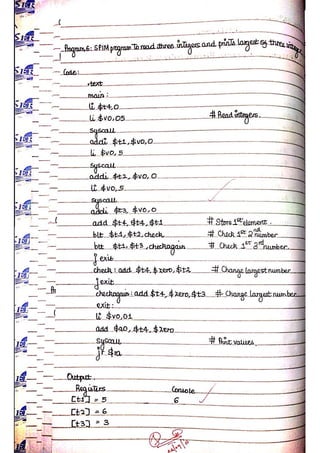 Program 6: SPIM program To read three integers and prints largest of three integers.
Code:
.text
main:
li $t4,0
li $v0,05 # Read integers.
syscall
addi $t1,$v0,0
li $v0,5
syscall
addi $t2,$v0,0
li $v0,5
syscall
addi $t3,$v0,0
add $t4,$t4,$t1 # Store 1st element.
blt $t1,$t2,check # Check 1st 2nd number
blt $t1,$t3,checkagain # Check 1st 3rd number.
j exit
check: add $t4,$zero,$t2 # Change largest number
j exit
checkagain: add $t4,$zero,$t3 # Change largest number
exit:
li $v0,01
add $a0,$t4,$zero
syscall # Print values
jr $ra
Output:
Registers Console
[t1] = 5 6
[t2] = 6
[t3] = 3